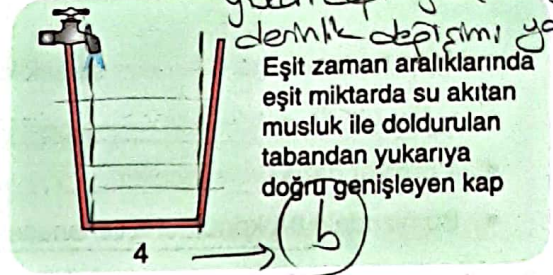 derinlik değişimi
Eşit zaman aralıklarında
eşit miktarda su akıtan
musluk ile doldurulan
tabandan yukarıya
doğru genişleyen kap
4
b